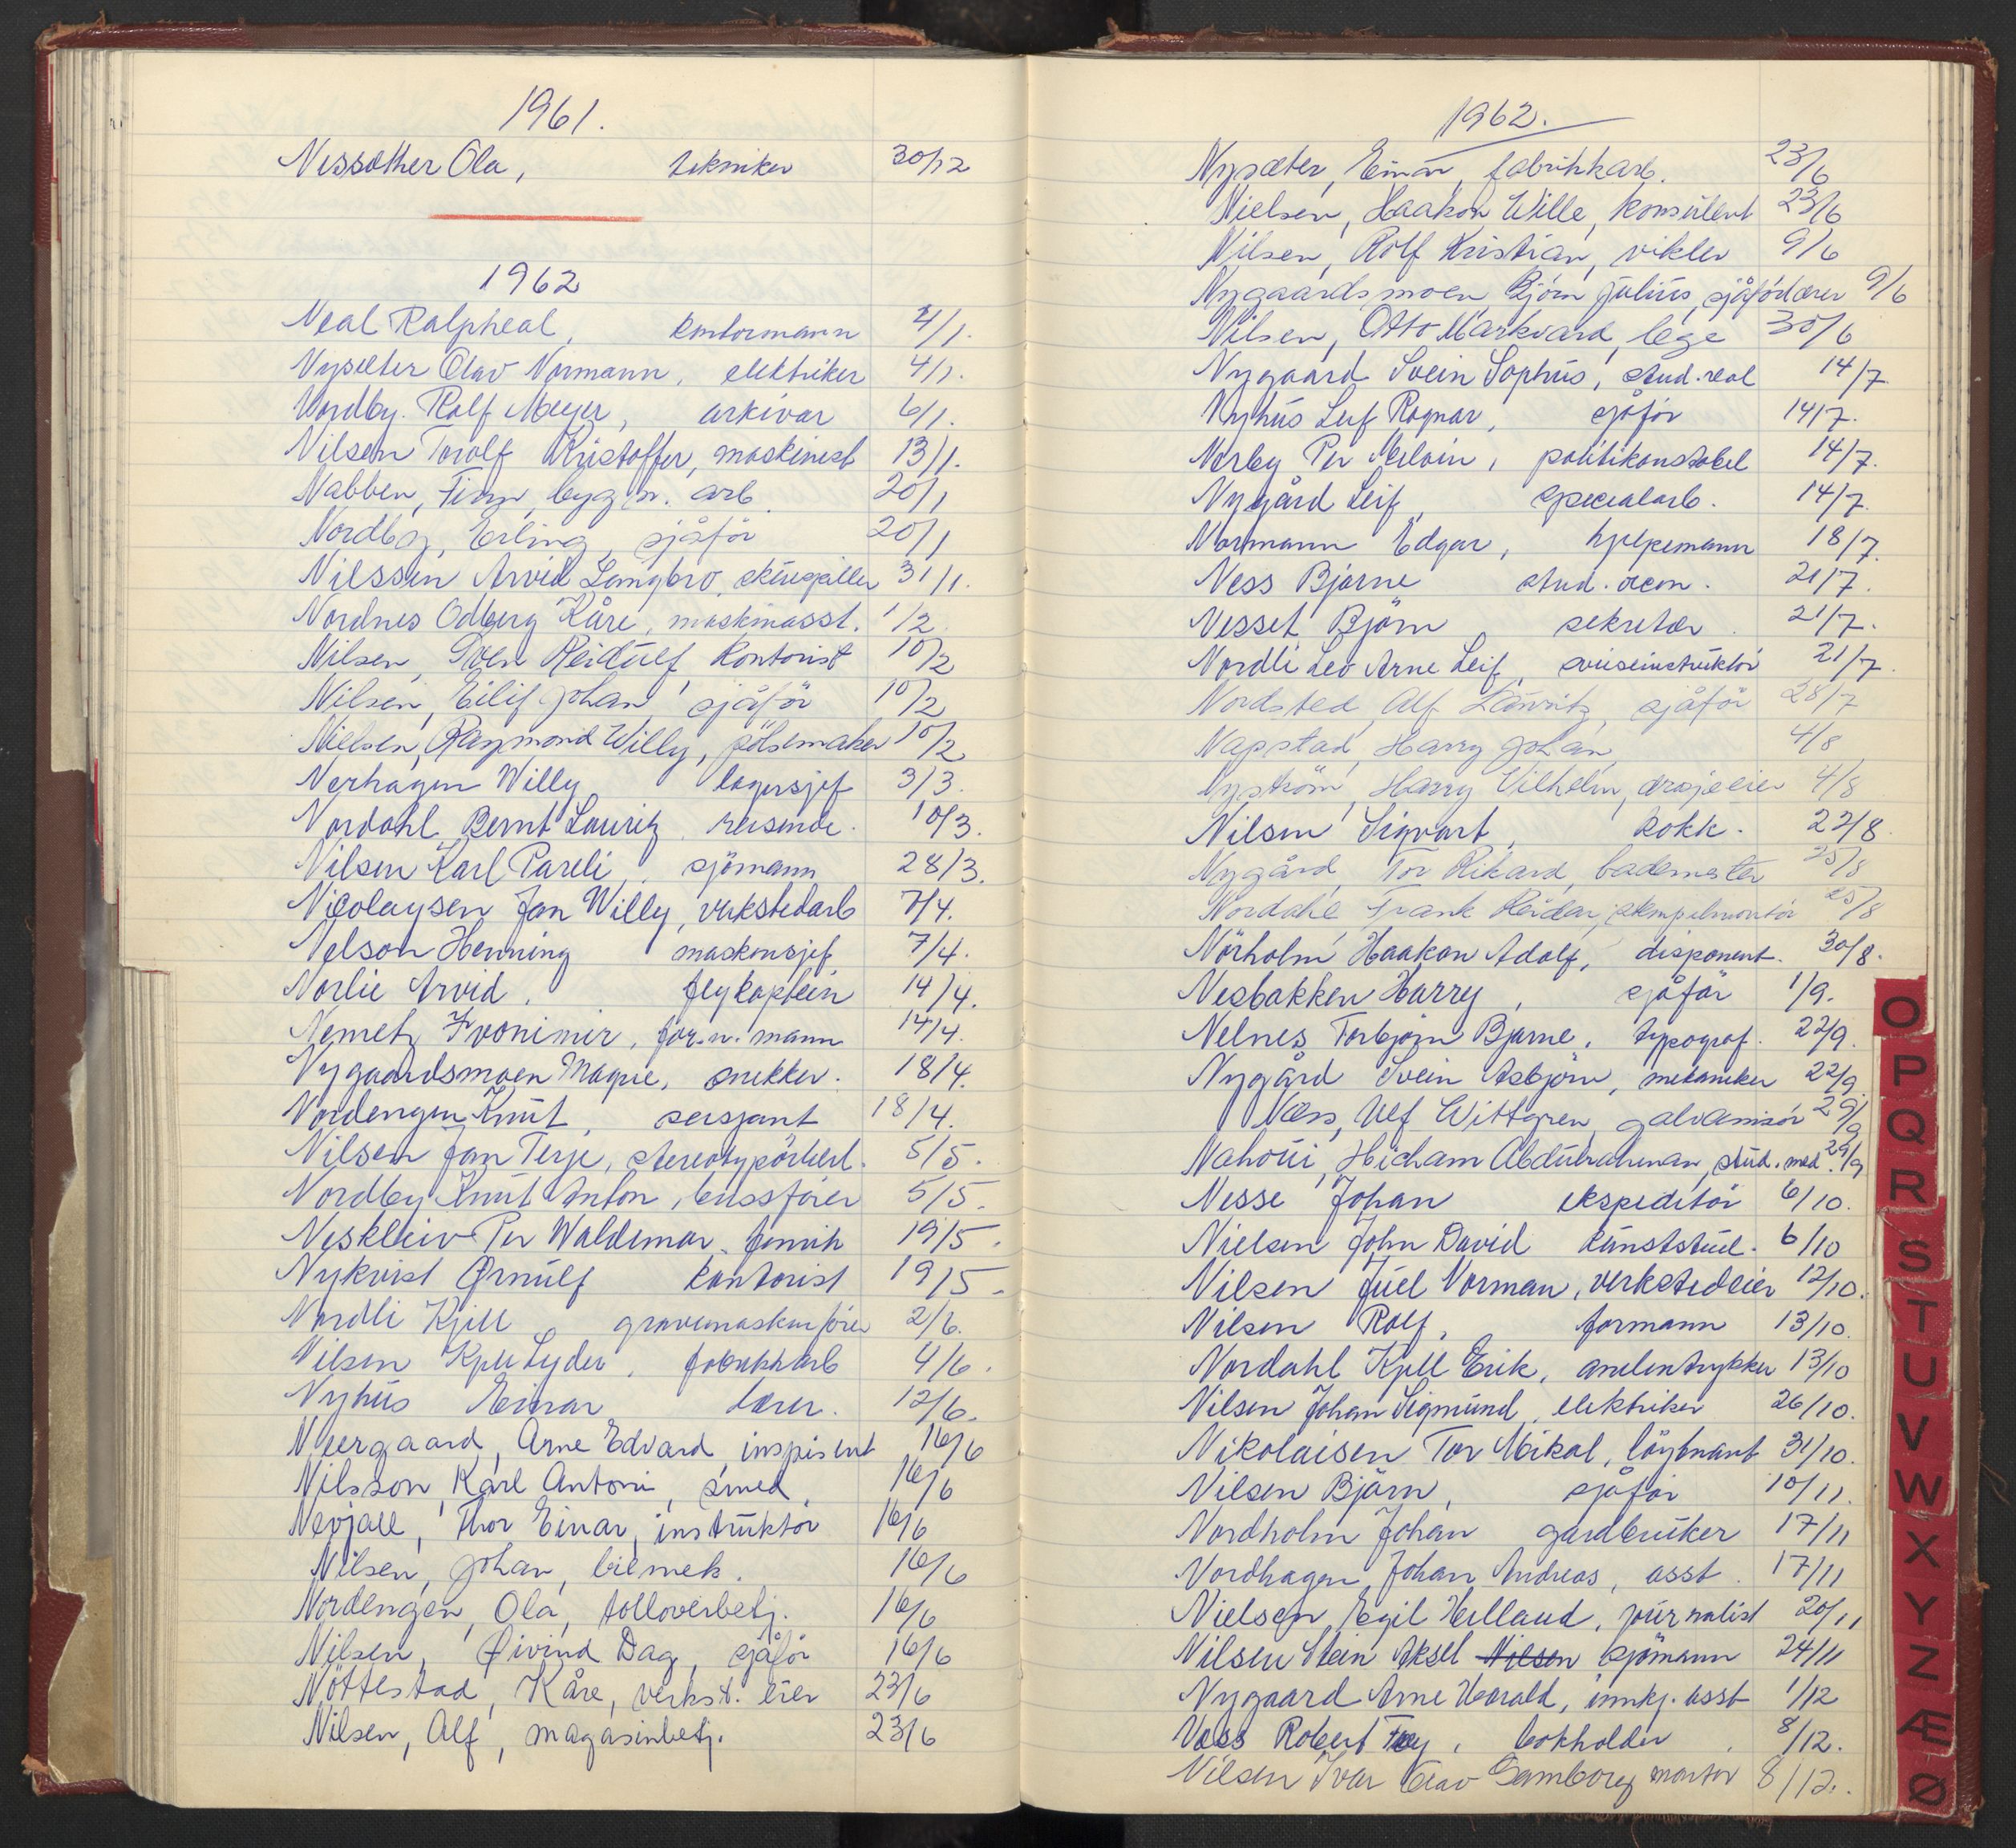 1961.
Nessæther Ola, tekniker 30/12
1962
Neal Ralpheal, kontormann 4/1.
Nysæter Olav Normann, elektriker 4/1.
Nordby. Rolf Meyer, arkivar 6/1.
Nilsen Torolf Kristoffer, maskinist 13/1.
Nabben, Finn, bygn. arb 20/1
Nordby, Erling, sjåför 20/1
Nilssen Arvid Langbro, 31/1.
Nordnes Odberg Kåre, maskinasst. 1/2
Nilsen, Sven Reidulf kontorist 10/2
Nilsen, Eilif Johan sjåför 10/2
Nielsen, Raymond Willy, pölsemaker 10/2
Nerhagen Willy lagersjef 3/3.
Nordahl Bernt Lauritz, reisende. 10/3.
Nilsen Karl Pareli, sjömann 28/3.
Nicolaysen Jan Willy, verkstedarb 7/4.
Nelson Henning maskinsjef 7/4.
Norlie Arvid, flykaptein 14/4.
Nemetz Zvonimir, for.n. mann 14/4.
Nygaardsmoen Magne, snekker. 18/4.
Nordengen Knut, sersjant 18/4.
Nilsen Jan Terje, 5/5.
Nordby Knut Anton, bussfører 5/5.
Neskleiv Per Waldemar, fenrik 19/5.
Nykvist Ørnulf kontorist 19/5.
Nordli Kjell, gravemaskinförer 2/6.
Nilsen Kjell Lyder, fabrikkarb 4/6.
Nyhus Einar lærer. 12/6.
Neergaard, Arne Edvard, inspisient 16/6
Nilsson, Karl Antoni, smed. 16/6
Nevjall, Thor Einar, instruktör 16/6
Nilsen, Johan, bilmek. 16/6
Nordengen, Ola, tolloverbetj. 16/6
Nilsen, Øivind Dag, sjåför 16/6
Nöttestad, Kåre, verkst. eier 23/6
Nilsen, Alf, magasinbetj. 23/6
1962.
Nysæter, Einar, fabrikkarb. 23/6
Nielsen, Haakon Wille, konsulent 23/6
Nilsen, Rolf Kristian, vikler 9/6
Nygaardsmoen Björn Julius, sjåförlærer 9/6
Nilsen, Otto Markvard, lege 30/6
Nygaard Svein Sophus, stud. real 14/7
Nyhus Leif Ragnar, sjåför 14/7.
Nerby Per Melvin, politikonstabel 14/7.
Nygård Leif, spesialarb. 14/7.
Normann Edgar, hjelpemann 18/7.
Ness Bjarne stud. oecon. 21/7.
Nesset Björn sekretær. 21/7.
Nordli Leo Arne Leif, 21/7.
Nordsted, Alf Lauritz, sjåför 28/7
Napstad, Harry Johan, 4/8
Nyström, Harry Vilhelm, drosjeeier 4/8
Nilsen Sigvart, kokk. 22/8.
Nygård, Tor Rikard, bademester 25/8
Nordahl, Frank Reidar, stempelmontör 25/8
Nörholm Haakon Adolf, disponent. 30/8.
Nesbakken Harry, sjåför 1/9.
Nelnes Torbjörn Bjarne, typograf. 22/9.
Nygård Svein Asbjörn, mekaniker 22/9.
Næss, Ulf Wittgren, galvanisör 29/9
Nahoui, Hicham Abdulrahman, stud. med. 29/9
Nesse Johan ekspeditör 6/10.
Nielsen John David kunststud. 6/10
Nilsen Juel Norman, verkstedeier 12/10.
Nilsen Rolf, formann 13/10.
Nordahl Kjell Erik, 13/10
Nilsen Johan Sigmund, elektriker 26/10.
Nikolaisen Tor Mikal, löytnant 31/10.
Nilsen Björn, sjåför 10/11.
Nordholm Johan gardbruker 17/11
Nordhagen Johan Andreas, asst. 17/11
Nielsen, Egil Helland, journalist 20/11
Nilsen Stein Aksel Nilsen sjömann 24/11
Nygaard Arne Harald, innkj. asst 1/12
Næss Robert, bokholder. 8/12.
Nilsen Ivar Olav Gamborg montör 8/12.
O
P
Q
R
S
T
U
V
W
X
Y
Z
Æ
Ø